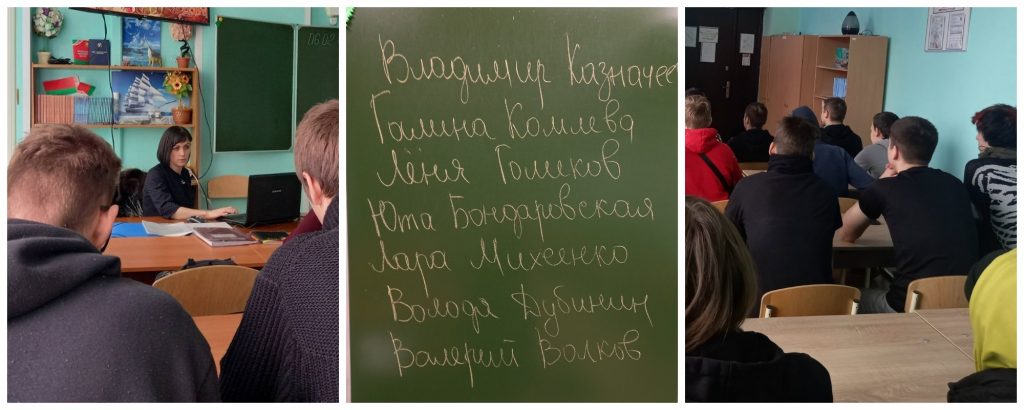 06.02
Владимир Казначее
Галина Комлева
Лёня Голиков
Юта Бондаровская
Лара Михеенко
Володя Дубинин
Валерий Волков